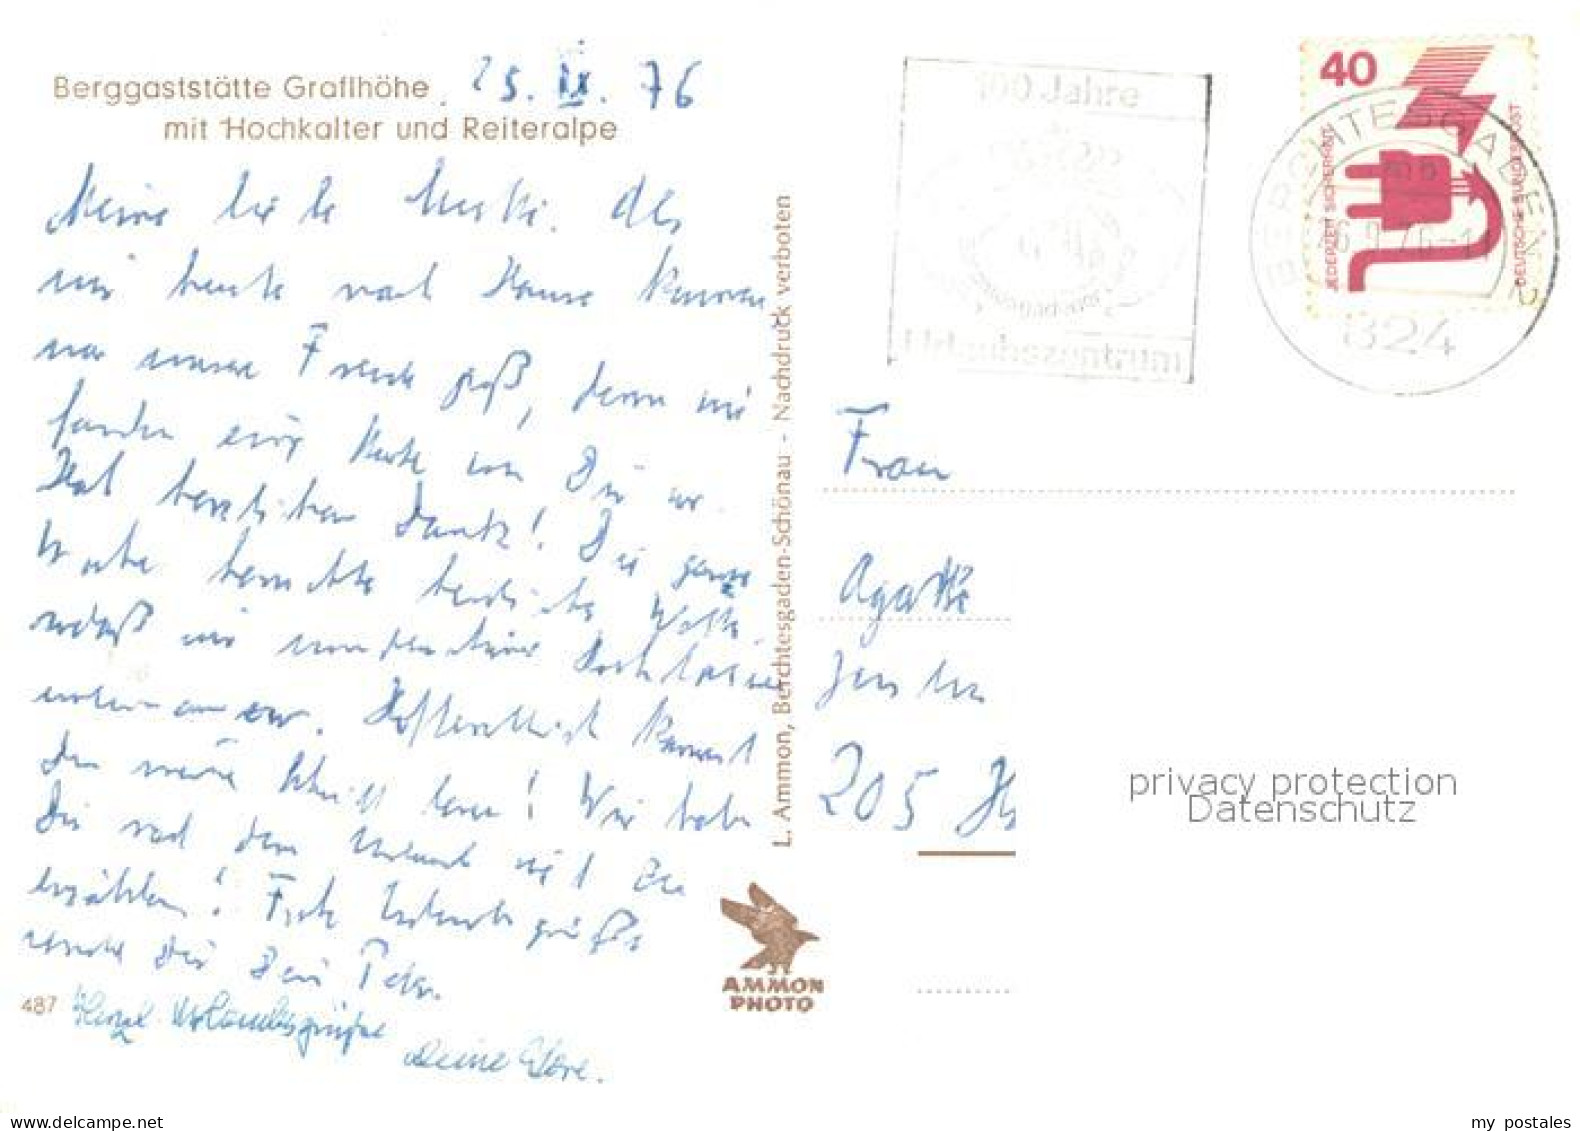 Berggaststätte Graflhöhe
mit Hochkalter und Reiteralpe
25. IX. 76
Meine liebe Als
wir heute nach Hause kamen
war unsere Freude groß, denn wir
fanden eine Karte von Dir vor.
Hab herzlichen Dank! Die ganze
Woche herrschte
sodaß wir
Hoffentlich kannst
Du meine Schrift lesen! Wir haben
Dir nach dem Urlaub viel zu
erzählen! Frohe Urlaubsgrüße
sendet Dir Dein Peter.
Herzl. Urlaubsgrüße
Deine
487
L. Ammon, Berchtesgaden-Schönau - Nachdruck verboten
AMMON
PHOTO
100 Jahre
Urlaubszentrum
40
JEDERZEIT SICHERHEIT
DEUTSCHE BUNDESPOST
BERCHTESGADEN 2
824
Frau
Agathe
205
privacy protection
Datenschutz
www.delcampe.net
my postales